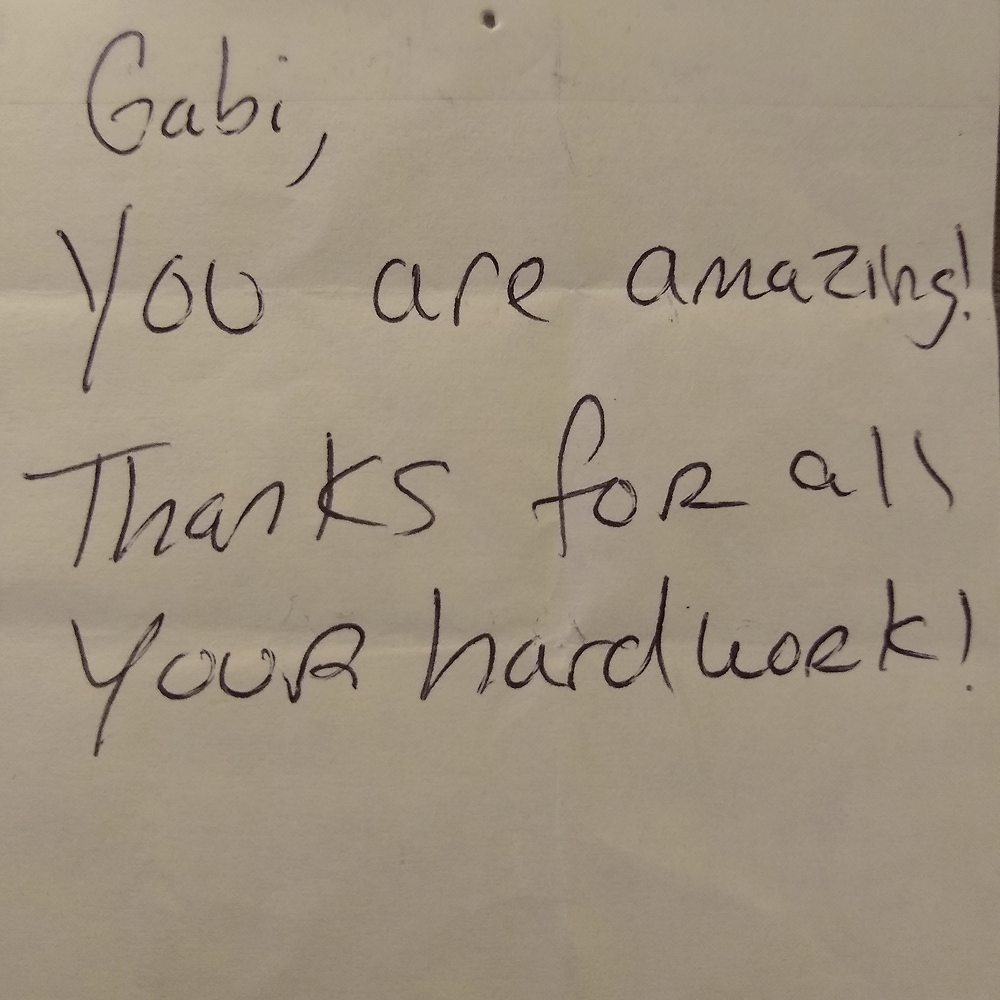 Gabi,
You are amazing!
Thanks for all
your hard work!